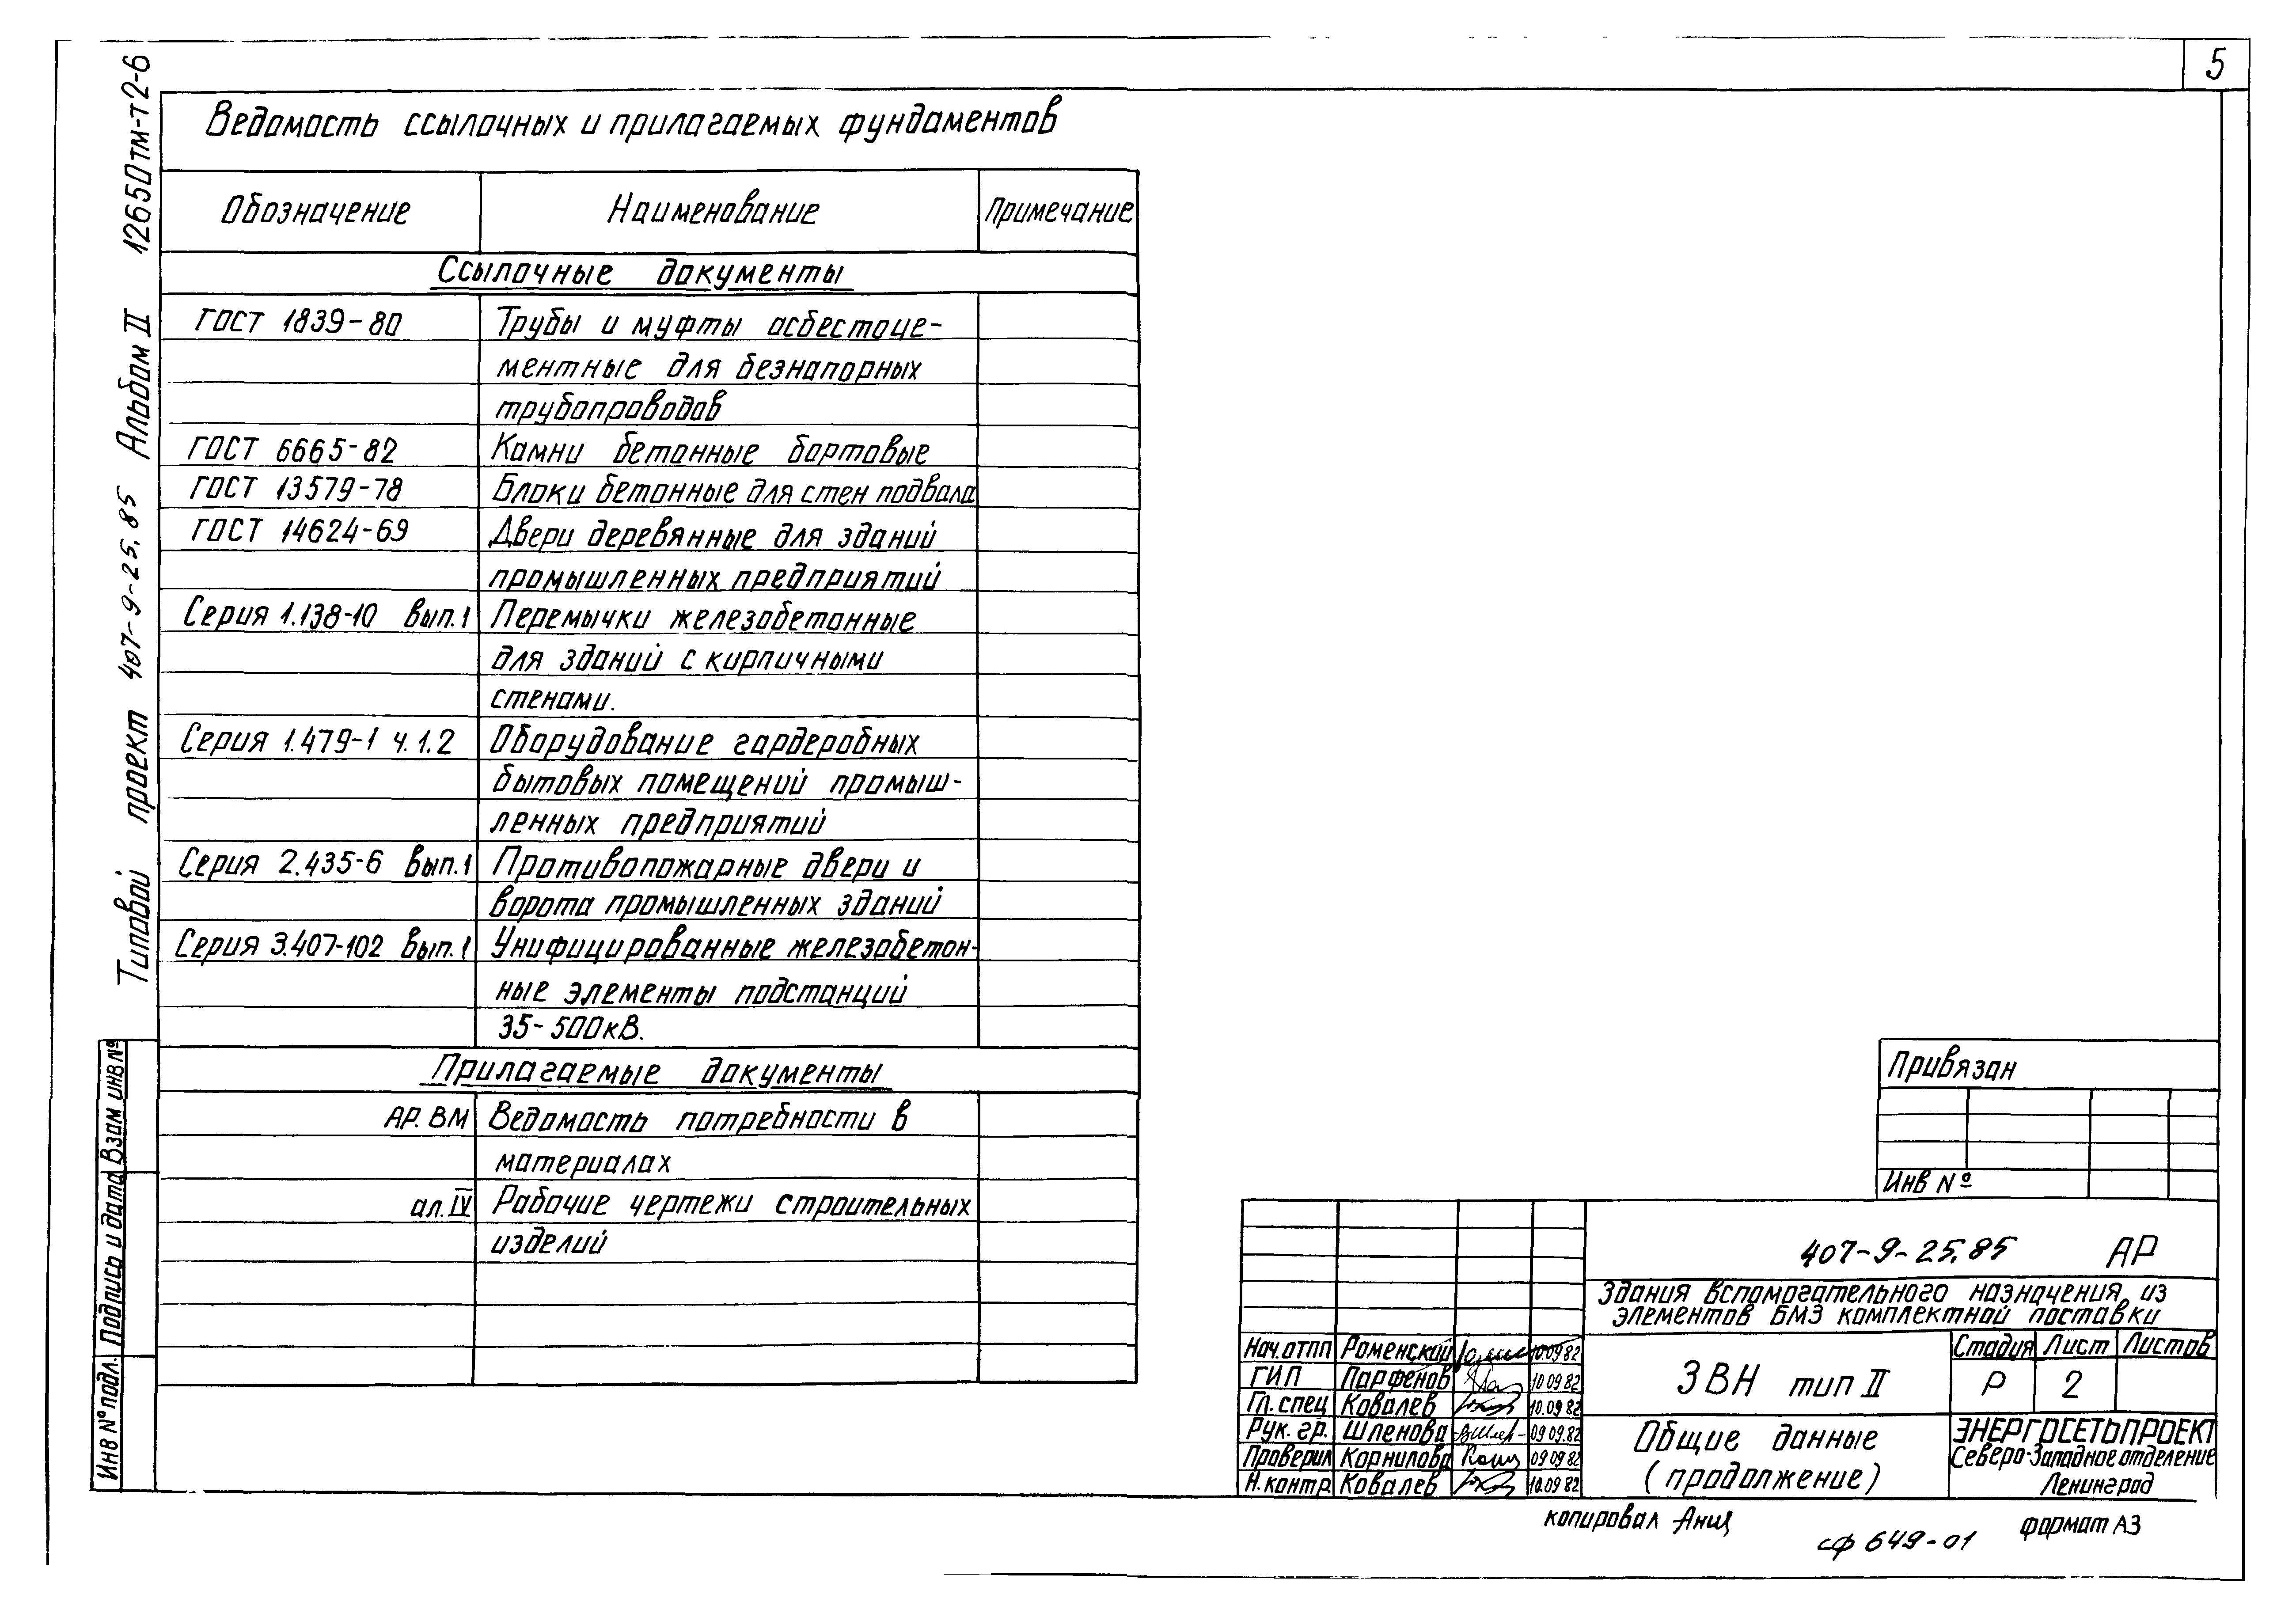 5
12650тм-т2-6
Альбом II
Типовой проект 407-9-25.85
Ведомость ссылочных и прилагаемых фундаментов
Обозначение Наименование Примечание
Ссылочные документы
ГОСТ 1839-80 Трубы и муфты асбестоце-
ментные для безнапорных
трубопроводов
ГОСТ 6665-82 Камни бетонные бортовые
ГОСТ 13579-78 Блоки бетонные для стен подвала
ГОСТ 14624-69 Двери деревянные для зданий
промышленных предприятий
Серия 1.138-10 вып.1 Перемычки железобетонные
для зданий с кирпичными
стенами.
Серия 1.479-1 ч.1.2 Оборудование гардеробных
бытовых помещений промыш-
ленных предприятий
Серия 2.435-6 вып.1 Противопожарные двери и
ворота промышленных зданий
Серия 3.407-102 вып.1 Унифицированные железобетон-
ные элементы подстанций
35-500кВ.
Прилагаемые документы
АР. ВМ Ведомость потребности в
материалах
ал. IV Рабочие чертежи строительных
изделий
Инв № подл. Подпись и дата Взам инв №
Привязан
Инв №
407-9-25.85 АР
Здания вспомогательного назначения из
элементов БМЗ комплектной поставки
Нач.отпп Роменский 10.09.82
ГИП Парфенов 10 09.82
Гл. спец Ковалев 10.09 82
Рук. гр. Шленова 09 09.82
Проверил Корнилова 09 09 82
Н. контр. Ковалев 10.09 82
ЗВН тип II
Стадия Лист Листов
Р 2
Общие данные
(продолжение)
ЭНЕРГОСЕТЬПРОЕКТ
Северо-Западное отделение
Ленинград
копировал Анщ
сф 649-01
формат А3